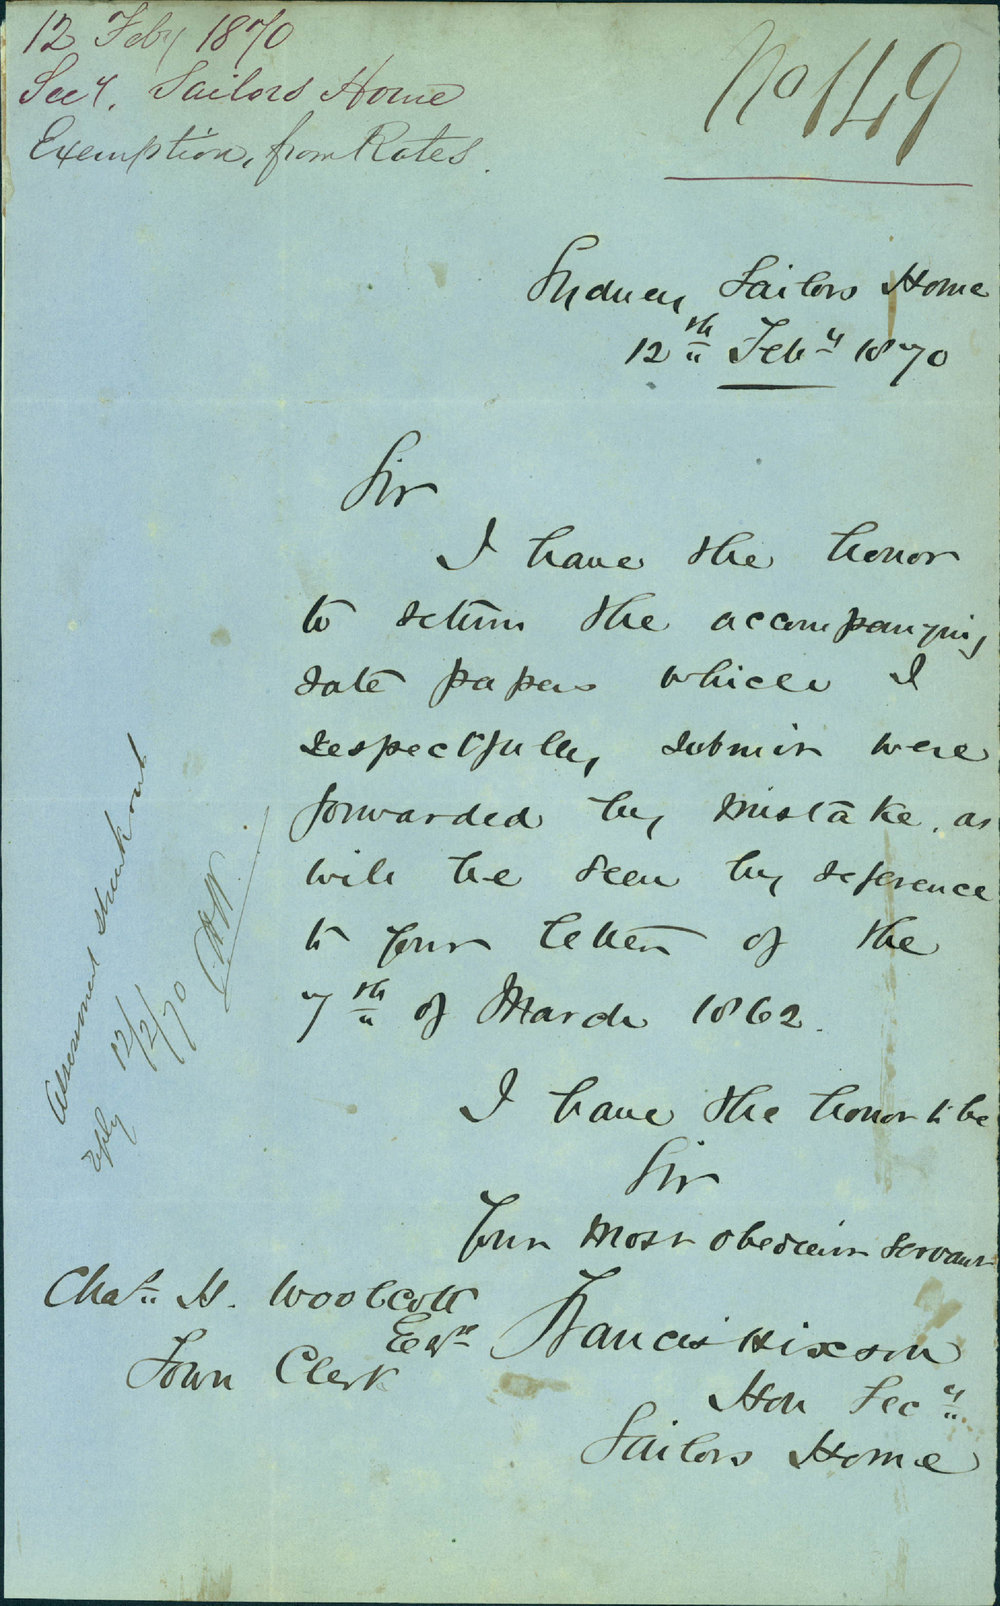 12 Feby 1870
Secy. Sailors Home
Exemption, from Rates.
No 149
Sydney Sailors Home
12th Feby 1870
Sir
I have the honor
to return the accompanying
rate papers which I
respectfully submit were
forwarded by mistake, as
will be seen by reference
to your letter of the
7th of March 1862.
I have the honor to be
Sir
Your Most obedient servant
Francis Hixson
Hon Secy
Sailors Home
Chas. H. Woolcott
Esqre
Town Clerk
Assessment struck out
reply 12/2/70